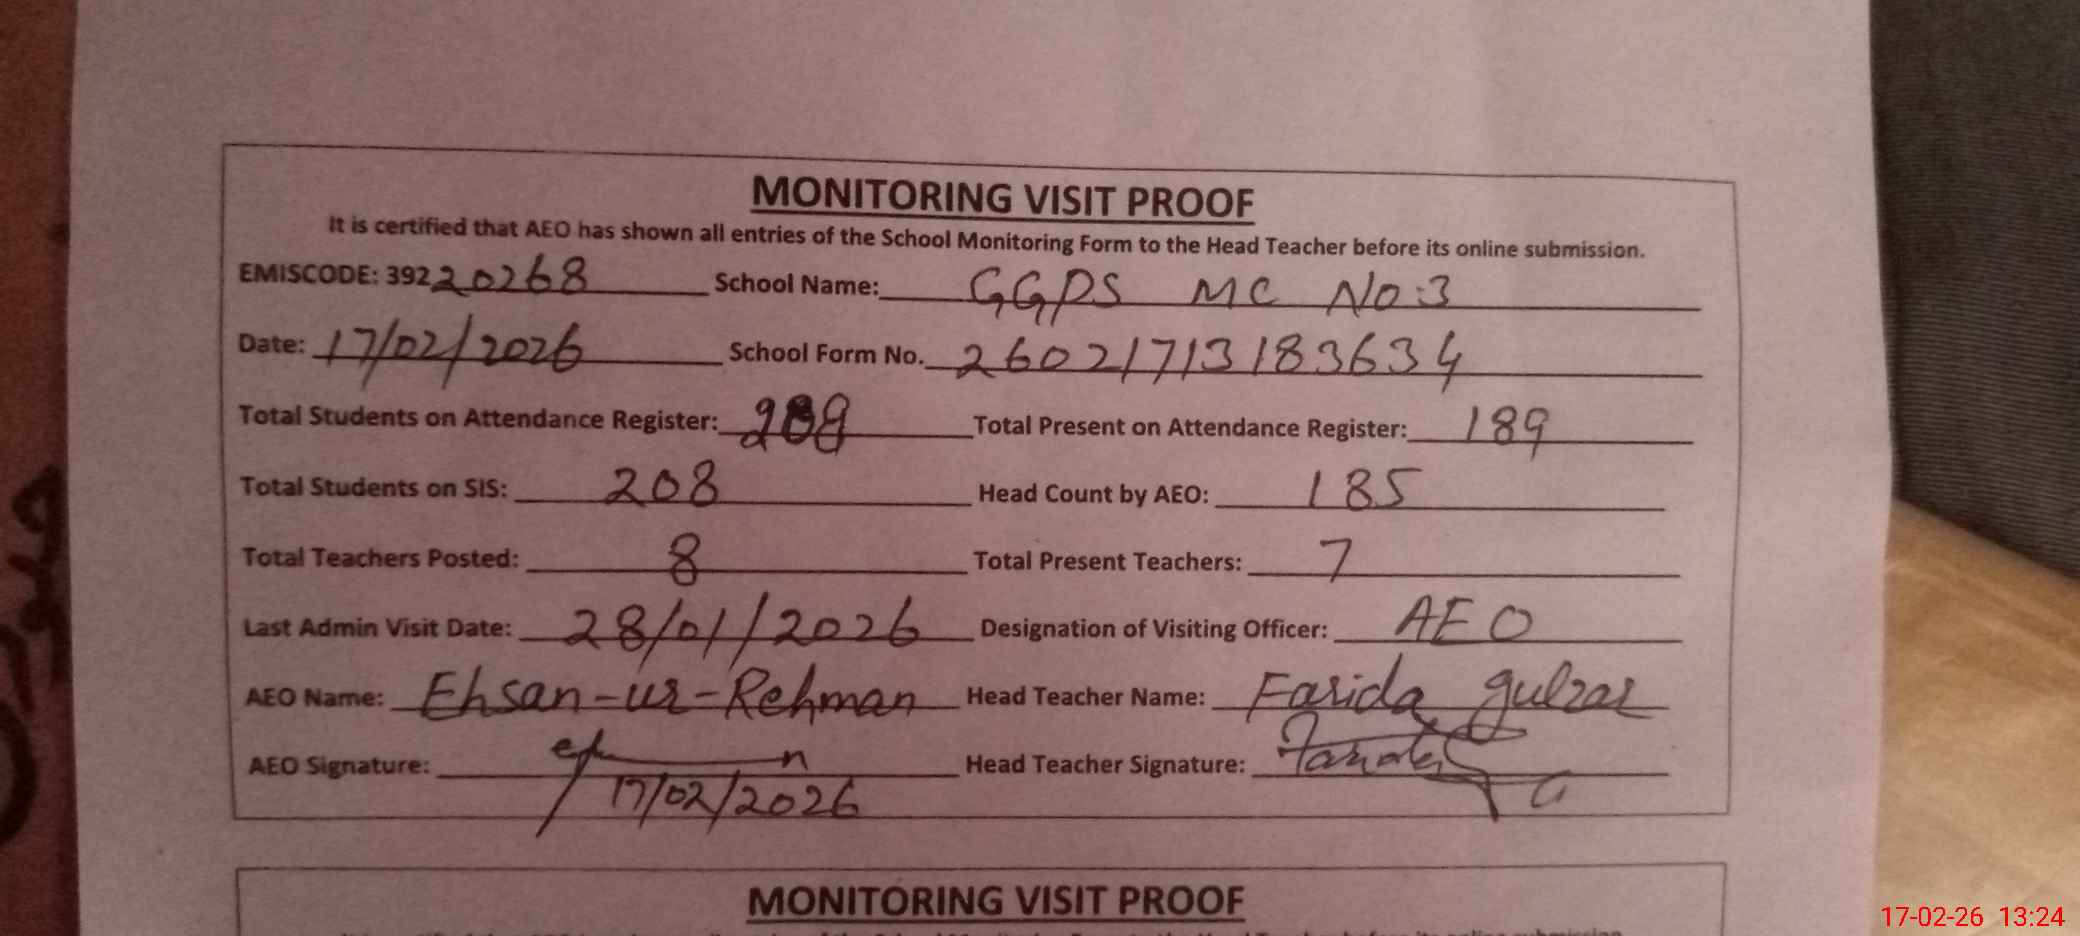 MONITORING VISIT PROOF
It is certified that AEO has shown all entries of the School Monitoring Form to the Head Teacher before its online submission.
EMISCODE: 39220268 School Name: GGPS MC No:3
Date: 17/02/2026 School Form No. 26021713183634
Total Students on Attendance Register: Total Present on Attendance Register: 189
Total Students on SIS: 208 Head Count by AEO: 185
Total Teachers Posted: 8 Total Present Teachers: 7
Last Admin Visit Date: 28/01/2026 Designation of Visiting Officer: AEO
AEO Name: Ehsan-ur-Rehman Head Teacher Name: Farida gulzar
AEO Signature: Head Teacher Signature: Farida
17/02/2026
MONITORING VISIT PROOF
17-02-26 13:24